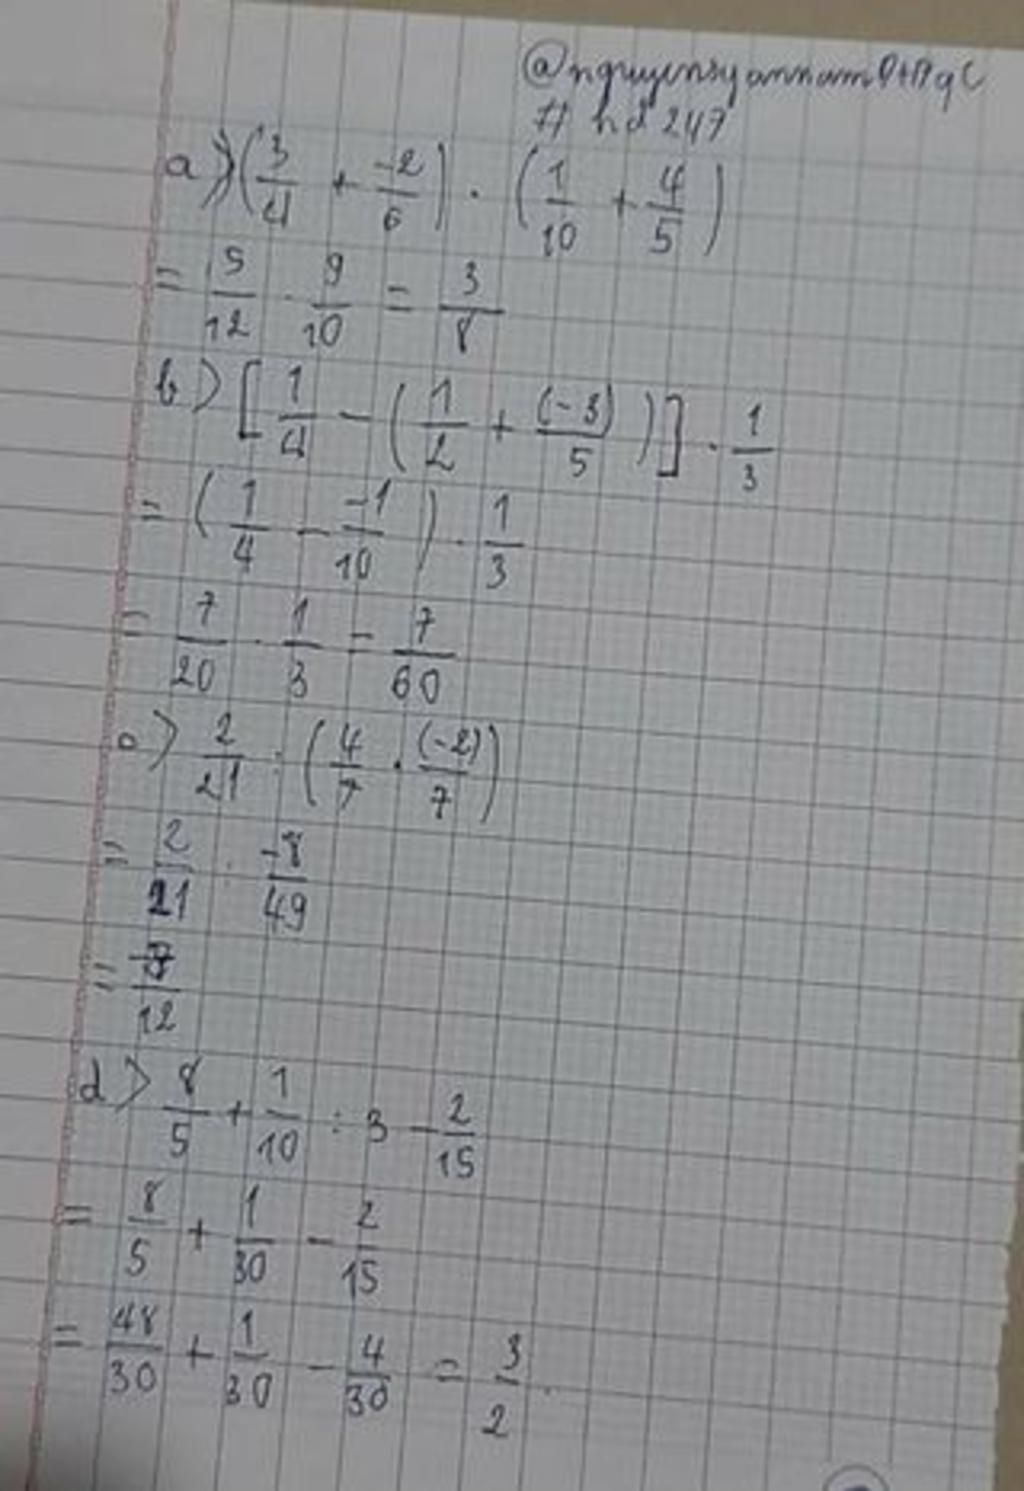 @nguyensyannamPtHgC
# hd 247
a) (3/4 + -2/6) . (1/10 + 4/5)
= 5/12 . 9/10 = 3/8
b) [1/4 - (1/2 + (-3)/5)] . 1/3
= (1/4 - -1/10) . 1/3
= 7/20 . 1/3 = 7/60
c) 2/21 : (4/7 . (-2)/7)
= 2/21 : -8/49
= /12
d) 8/5 + 1/10 : 3 - 2/15
= 8/5 + 1/30 - 2/15
= 48/30 + 1/30 - 4/30 = 3/2.